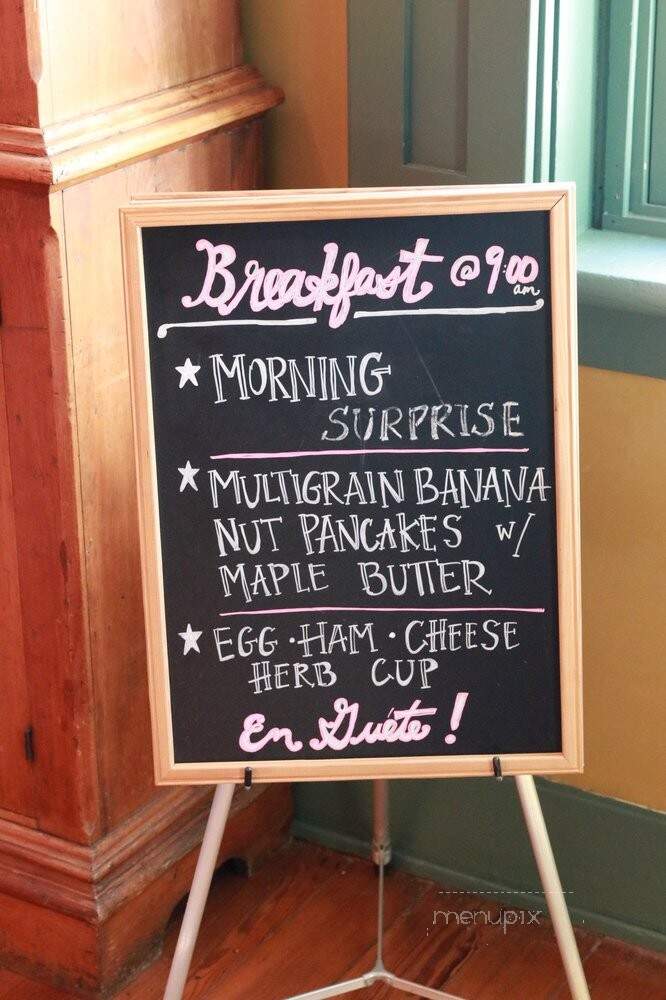 Breakfast @ 9:00 am
★ MORNING
SURPRISE
★ MULTIGRAIN BANANA
NUT PANCAKES w/
MAPLE BUTTER
★ EGG · HAM · CHEESE
HERB CUP
En Guéte!
menupix